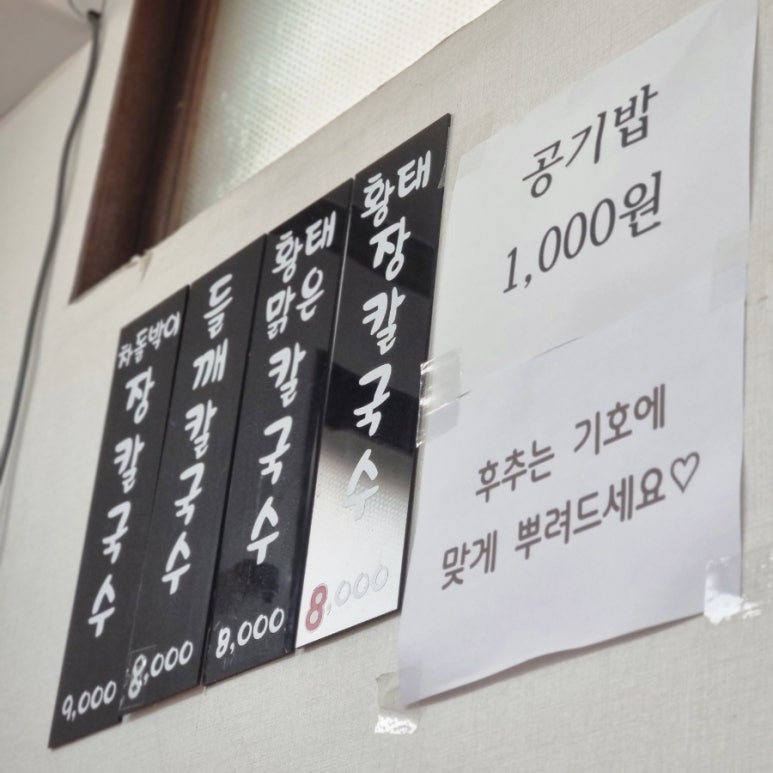 차돌박이
장칼국수
9,000
들깨칼국수
8,000
황태
맑은
칼국수
8,000
황태
장칼국수
8,000
공기밥
1,000원
후추는 기호에
맞게 뿌려드세요♡